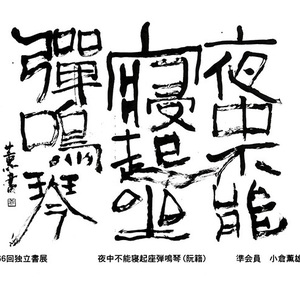 夜中不能
寝起坐
彈鳴琴
薫書
66回独立書展
夜中不能寝起座弾鳴琴(阮籍)
準会員 小倉薫雄